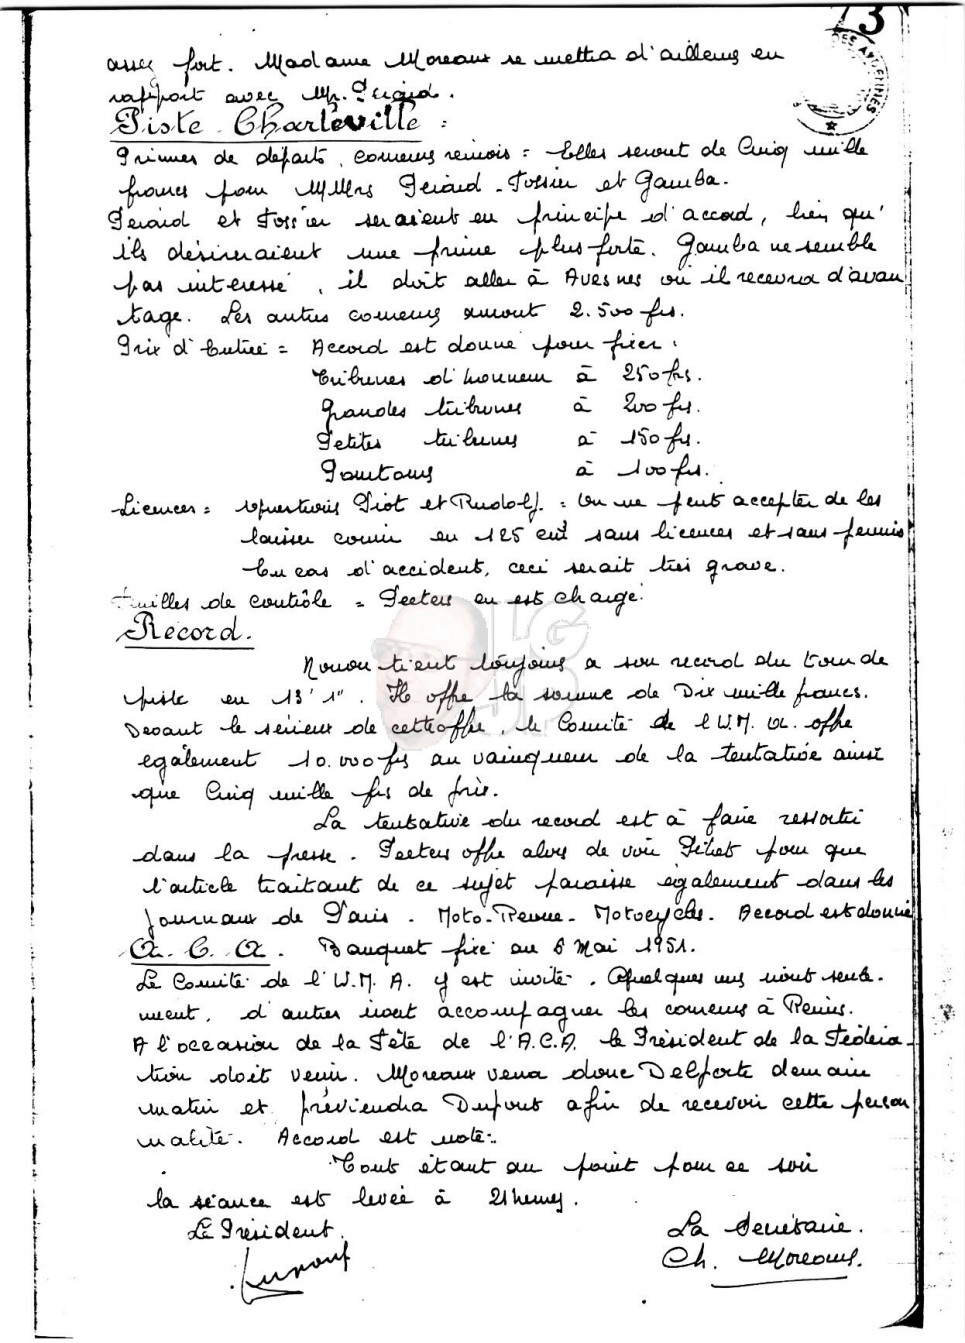 3
DES ARDENNES
assez fort. Madame Moreaux se mettra d'ailleurs en
rapport avec Mr. Gérard.
Piste Charleville :
Primes de départs, coureurs rémois = Elles seront de Cinq mille
francs pour MMrs Gérard - Tossier et Gamba.
Gérard et Tossier seraient en principe d'accord, bien qu'
ils désireraient une prime plus forte. Gamba ne semble
pas intéressé, il doit aller à Avesnes où il recevra d'avan
tage. Les autres coureurs auront 2.500 frs.
Prix d'Entrée = Accord est donné pour fixer :
Tribunes d'honneur à 250 frs.
Grandes tribunes à 200 frs.
Petites tribunes à 150 frs.
Pourtours à 100 frs.
Licences = Piot et Rudolf. = On ne peut accepter de les
laisser courir en 125 cm3 sans licences et sans permis
En cas d'accident, ceci serait très grave.
Feuilles de contrôle = Peeters en est chargé.
Record.
tient toujours a son record du tour de
piste en 13' 1". Il offre la somme de Dix mille francs.
Devant le sérieux de cette offre, le Comité de l'U.M.A. offre
également 10.000 frs au vainqueur de la tentative ainsi
que Cinq mille frs de prix.
La tentative du record est à faire ressortir
dans la presse. Peeters offre alors de voir pour que
l'article traitant de ce sujet paraisse également dans les
journaux de Paris - Moto-Revue - Motocycles. Accord est donné
A. C. A. Banquet fixé au 6 Mai 1951.
Le Comité de l'U.M.A. y est invité. Quelques uns iront seule-
ment, d'autres iront accompagner les coureurs à Reims.
A l'occasion de la Fête de l'A.C.A. le Président de la Fédéra-
tion doit venir. Moreaux verra donc Delporte demain
matin et préviendra Dupont afin de recevoir cette person
nalité. Accord est noté.
Tout étant au point pour ce soir
la séance est levée à 21 heures.
Le Président. La Secrétaire.
Ch. Moreaux.